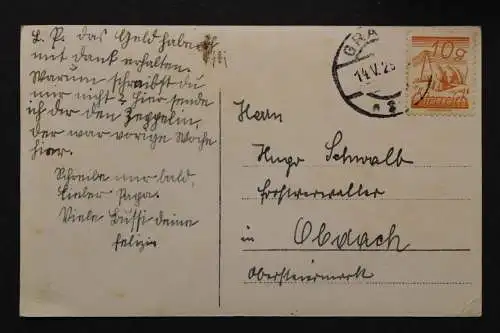 L. P. das Geld habe ich
mit dank erhalten.
Warum schreibst du
mir nicht? Hier sende
ich dir den Zeppelin,
der war vorige Woche
hier.
Schreibe mir bald,
lieber Papa.
Viele Bussi deine
Felizie
GRA
14.V.2
10g
Österreich
Herrn
Hugo Schwalb
Forstverwalter
in Obdach
Obersteiermark